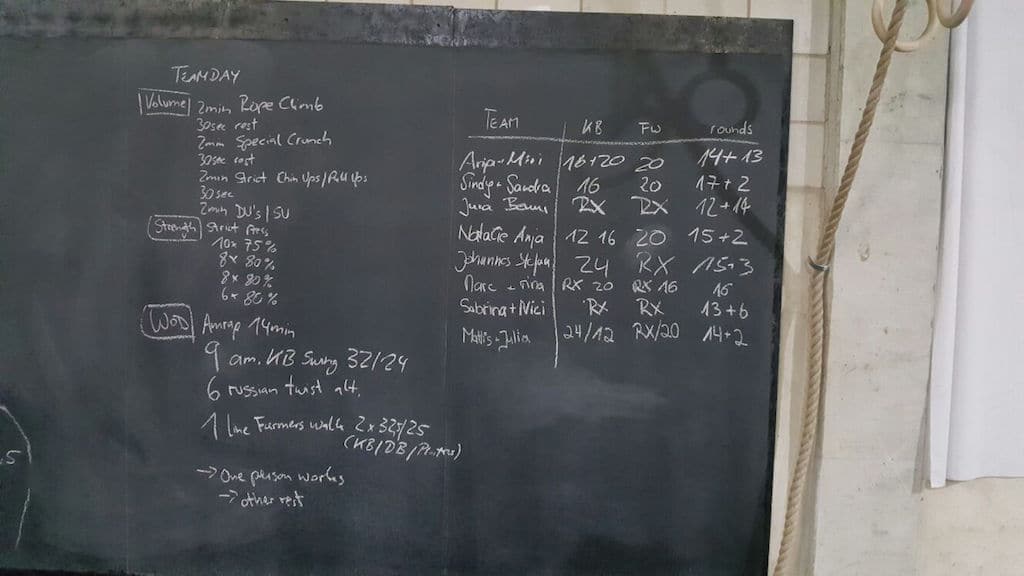 TEAMDAY
Volume 2min Rope Climb
30sec rest
2min Special Crunch
30sec rest
2min Strict Chin Ups/Pull Ups
30sec
2min DU's/SU
Strength Strict
10x 75%
8x 80%
8x 80%
6x 80%
WOD Amrap 14min
9 am. KB Swing 32/24
6 russian twist alt.
1 Line Farmers walk 2x32,5/25
(KB/DB/)
→ One person works
→ other rest
TEAM KB FW rounds
Anja+Miri 16+20 20 14+13
Sindy+Sandra 16 20 17+2
RX RX 12+14
Natalie Anja 12 16 20 15+2
Johannes Stefan 24 RX 15+3
Marc + RX 20 RX 16 16
Sabrina+Nici RX RX 13+6
Mattis+Julia 24/12 RX/20 14+2
,5